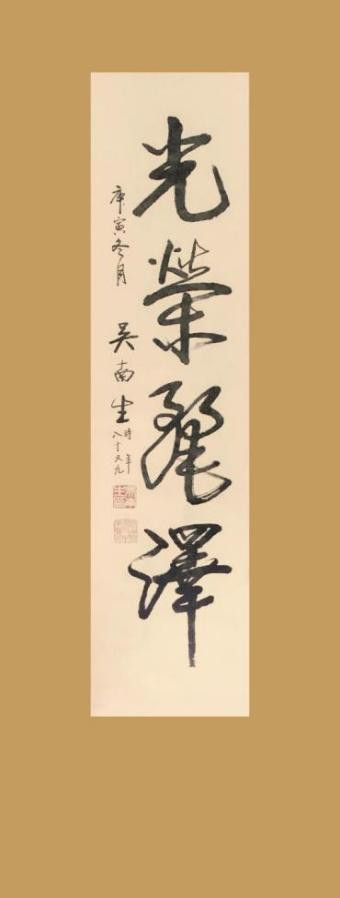 光榮麗澤
庚寅冬月 吳南生
時年
八十又九